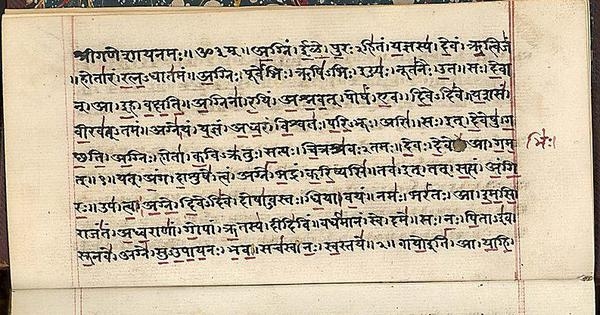 श्रीगणेशायनमः॥ॐ३म्॥अग्निं।ईळे।पुरःऽहितं।यज्ञस्य।देवं।ऋत्विजं
॥होतारं।रत्नऽधातमं॥अग्निः।पूर्वेभिः।ऋषिऽभिः।ईड्यः।नूतनैः।उत॥सः।देवा
न्।आ।इह।वक्षति॥अग्निना।रयिं।अश्नवत्।पोषं।एव।दिवेऽदिवे॥यशसं
वीरवत्ऽतमं॥अग्ने।यं।यज्ञं।अध्वरं।विश्वतः।परिऽभूः।असि॥सः।इत्।देवेषु।ग
च्छति॥अग्निः।होता।कविऽक्रतुः।सत्यः।चित्रश्रवःऽतमः॥देवः।देवे।आ।गम
भिः।
त्॥१॥यत्।अंग।दाशुषे।त्वं।अग्ने।भद्रं।करिष्यसि॥तव।इत्।तत्।सत्यं।अंगि
रः॥उप।त्वा।अग्ने।दिवेऽदिवे।दोषाऽवस्तः।धिया।वयं॥नमः।भरंतः।आ।इमसि
राजंतं।अध्वराणां।गोपां।ऋतस्य।दीदिविं॥वर्धमानं।स्वे।दमे॥सः।नः।पिताऽइव
सूनवे।अग्ने।सुऽउपायनः।भव॥सचस्व।नः।स्वस्तये॥२॥वायोइति।आ।याहि।